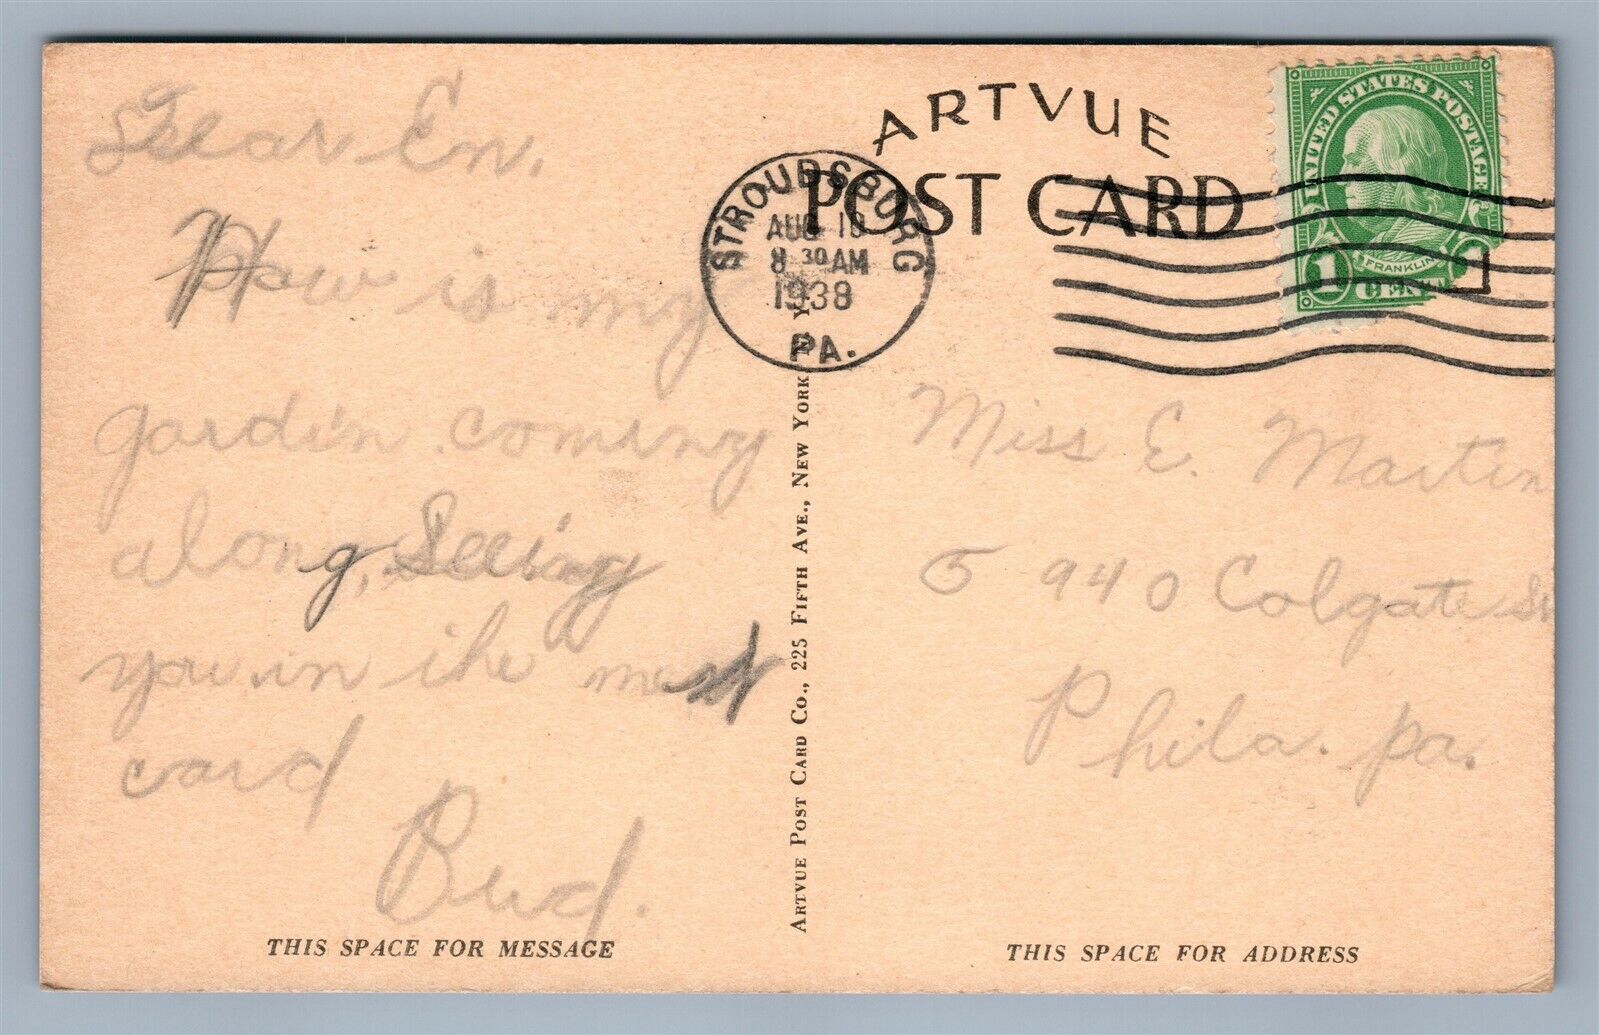 Dear En.
How is my
garden coming
along, Seeing
you in the next
card
Bud.
THIS SPACE FOR MESSAGE
ARTVUE POST CARD CO., 225 FIFTH AVE., NEW YORK, N. Y.
ARTVUE
POST CARD
STROUDSBURG
AUG 10
8 30 AM
1938
PA.
UNITED STATES POSTAGE
FRANKLIN
1 CENT
Miss E. Martin
5940 Colgate St
Phila. Pa.
THIS SPACE FOR ADDRESS